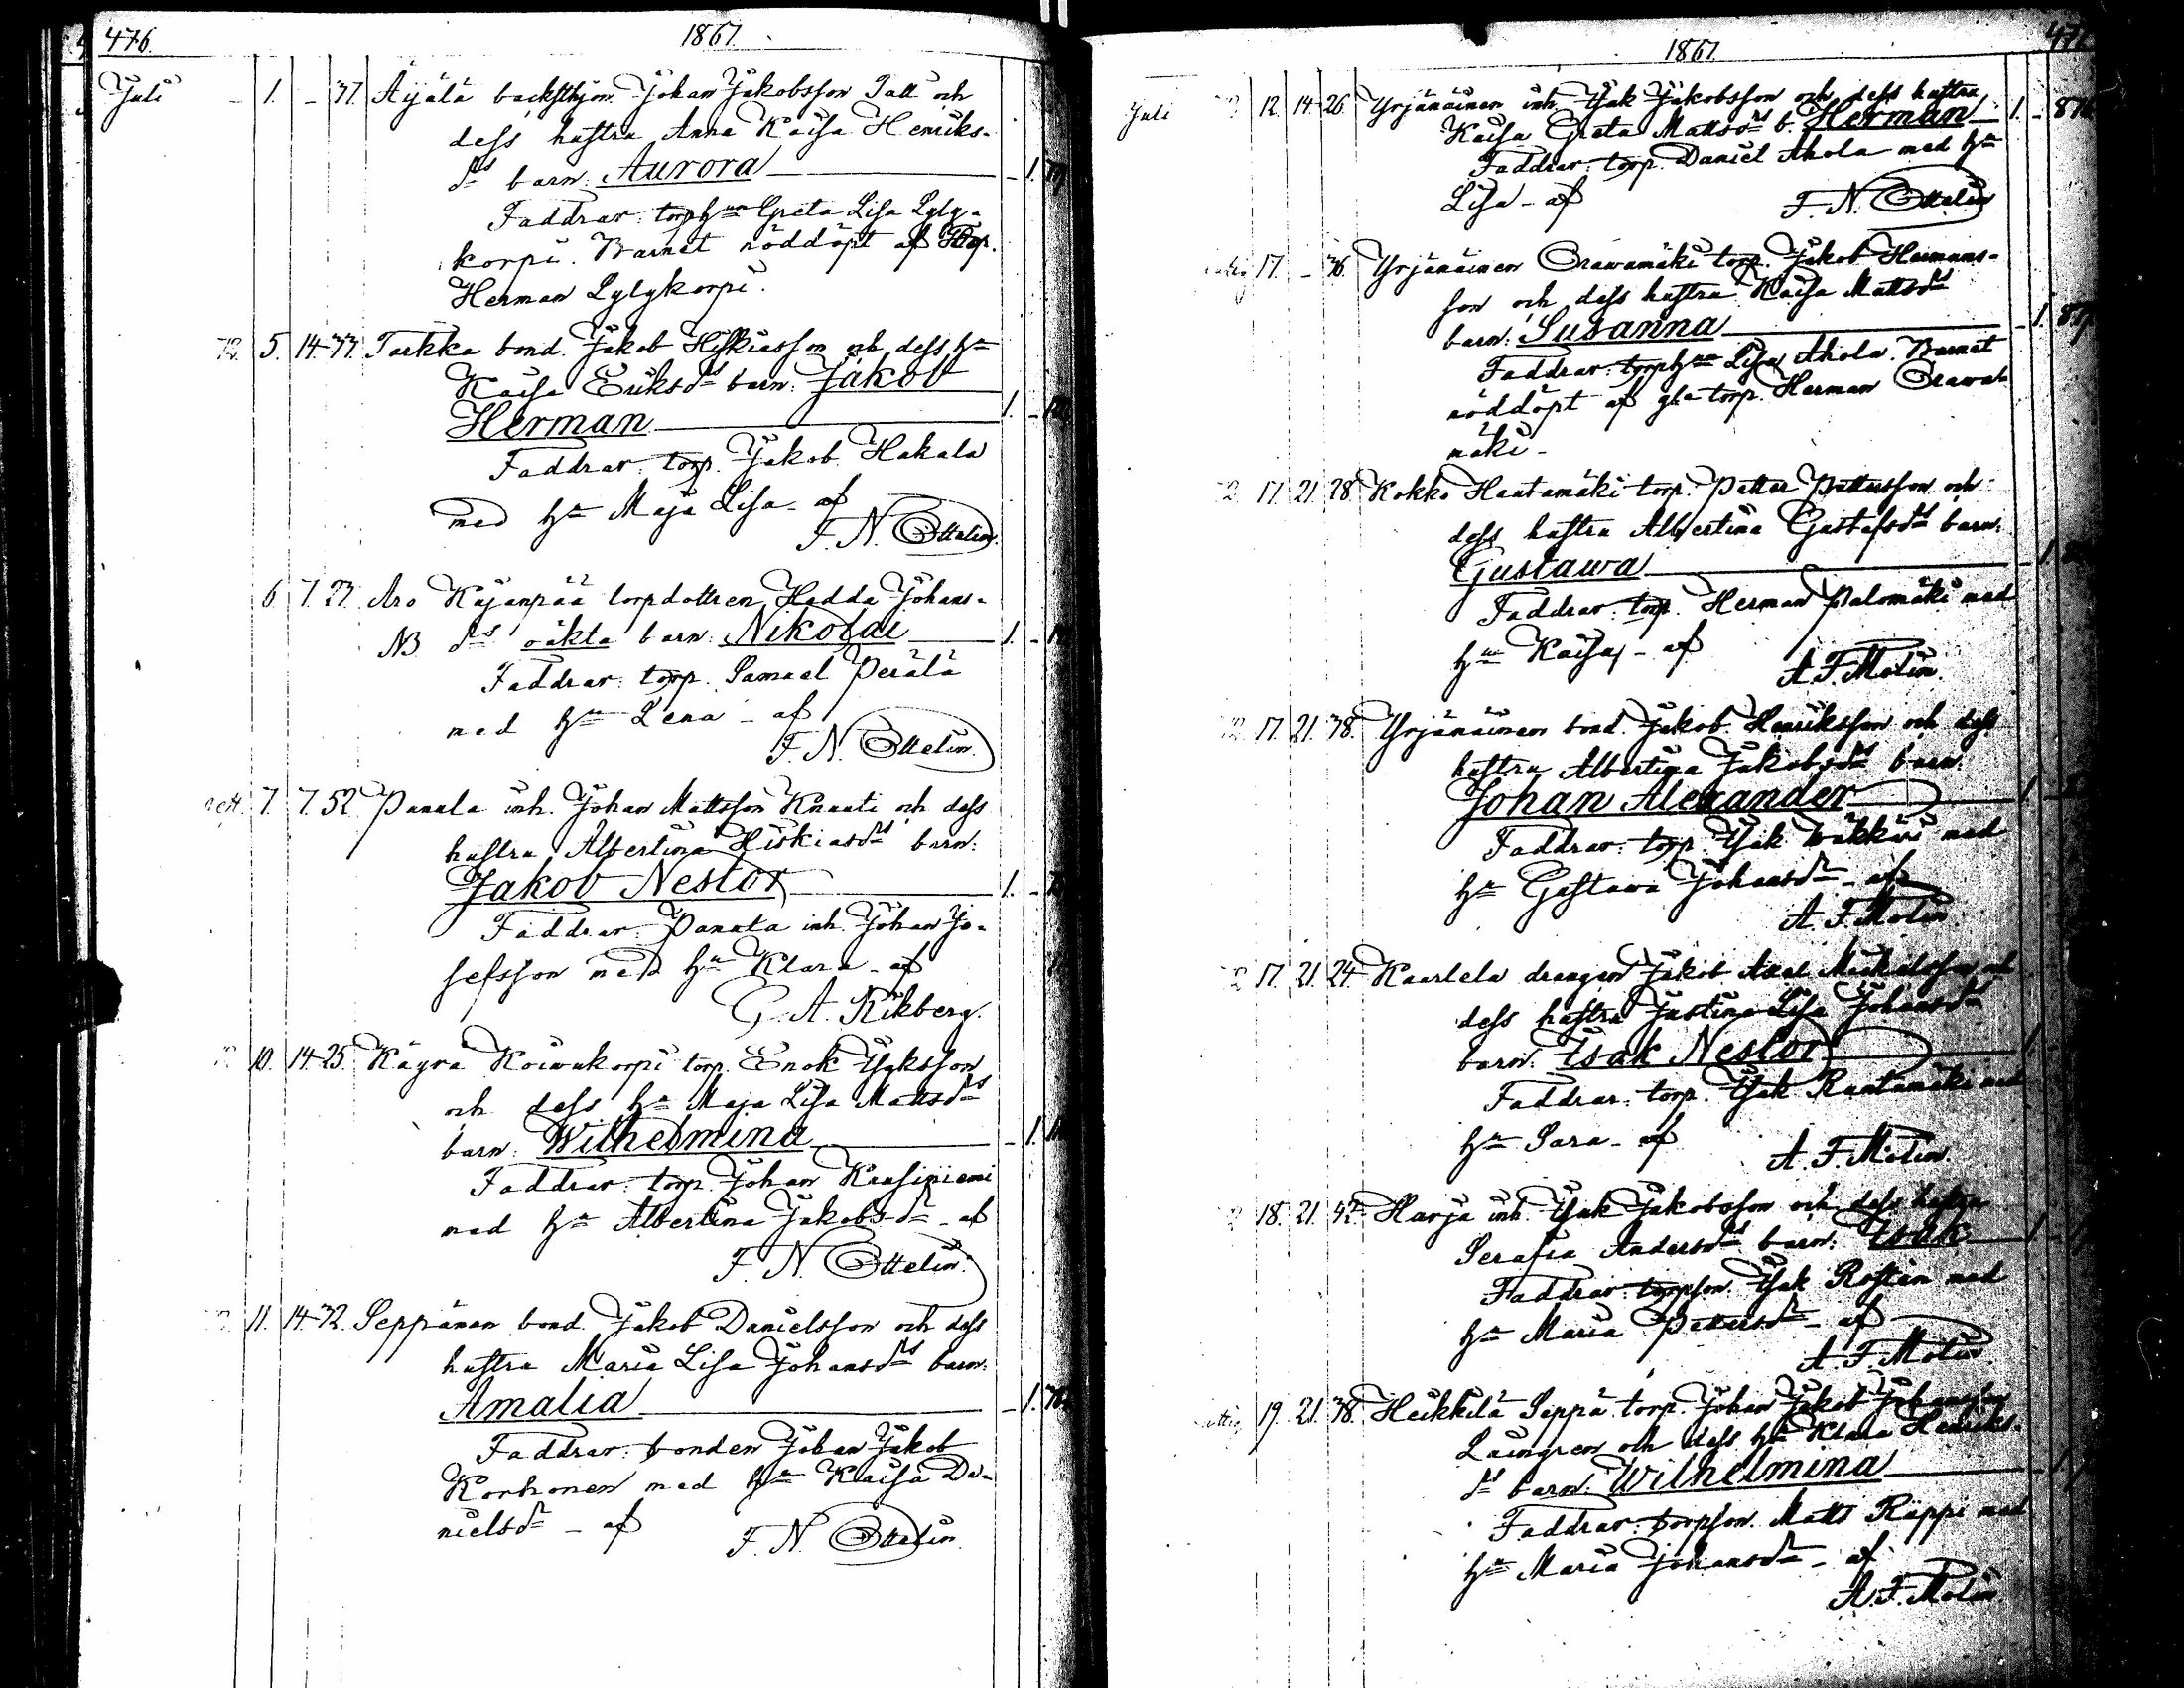 476.
1867.
Juli - 1. - 37. Äijälä backsthjon. Johan Jakobsson Tall och
dess hustru Anna Kaisa Henriks-
drs barn: Aurora - 1.
Faddrar: torphun Greta Lisa Lyly-
korpi. Barnet nöddöpt af
Herman Lylykorpi.
5. 14. 37. Tarkka bond. Jakob Hiskiasson och dess hu
Kaisa Eriksdrs barn: Jakob
Herman 1.
Faddrar: torp. Jakob Hakala
med hu Maja Lisa - af
F. N. Ottelin.
6. 7. 27. Aro Kajanpää torpdottren Hedda Johans-
NB drs oäkta barn: Nikolai 1.
Faddrar: torp. Samuel Perälä
med hu Lena - af
F. N. Ottelin.
7. 7. 32. Panula inh. Johan Mattsson Knuuti och dess
hustru Albertina Hiskiasdrs barn:
Jakob Nestor 1.
Faddrar: Panula inh. Johan Jo-
sefsson med hu Klara - af
G. A. Rikberg.
10. 14. 25. Käyrä Koiwukorpi torp. Enok Isaksson
och dess hu Maja Lisa Mattsdrs
barn: Wilhelmina - 1.
Faddrar: torp. Johan Kuusiniemi
med hu Albertina Jakobsdr - af
F. N. Ottelin.
11. 14. 32. Seppänen bond. Jakob Danielsson och dess
hustru Maria Lisa Johansdrs barn:
Amalia - 1.
Faddrar: bonden Johan Jakob
Korhonen med hu Kaisa Da-
nielsdr - af F. N. Ottelin.
1867.
477
Juli 12. 14. 26. Yrjänäinen inh. Isak Jakobsson och dess hustru
Kaisa Greta Mattsdrs b. Herman 1.
Faddrar: torp. Daniel Ahola med hu
Lisa - af F. N. Ottelin
17. - 36. Yrjänäinen Orawamäki torp. Jakob Hermans-
son och dess hustru Kaisa Mattsdrs
barn: Susanna - 1.
Faddrar: torphun Lisa Ahola. Barnet
nöddöpt af gle torp. Herman Orawa-
mäki -
17. 21. 28. Kokko Hautamäki torp. Petter Pettersson och
dess hustru Albertina Gustafsdrs barn:
Gustawa - 1.
Faddrar: torp. Herman Palomäki med
hu Kaisa - af
A. F. Molin.
17. 21. 38. Yrjänäinen bond. Jakob Henriksson och dess
hustru Albertina Jakobsdrs barn:
Johan Alexander 1.
Faddrar: torp. Isak med
hu Gustawa Johansdr - af
A. F. Molin
17. 21. 24. Kaarlela drengen Jakob Axel Mickelsson och
dess hustru Justina Lisa Johansdrs
barn: Isak Nestor
Faddrar: torp. Isak Rautamäki med
hu Sara - af A. F. Molin.
18. 21. 42. Harja inh. Isak Jakobsson och dess hustru
Serafia Andersdrs barn: Isak 1.
Faddrar: torpson. Isak med
hu Maria Pettersdr - af
A. F. Molin
19. 21. 38. Heikkilä Seppä torp. Johan Jakob Johansson
och dess hu Klara Henriks-
drs barn: Wilhelmina
Faddrar: torpson. Matts Rippi med
hu Maria Johansdr - af
A. F. Molin